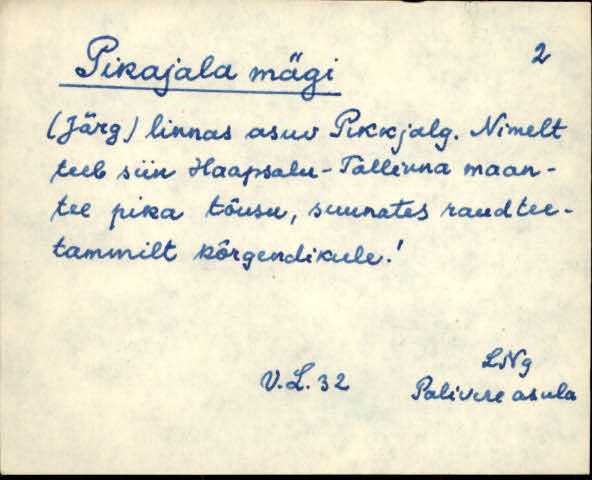 Pikajala mägi
2
(Järg) linnas asuv Pikkjalg. Nimelt
teeb siin Haapsalu-Tallinna maan-
tee pika tõusu, suunates raudtee-
tammilt kõrgendikule.!
LNg
V.L. 32
Palivere asula